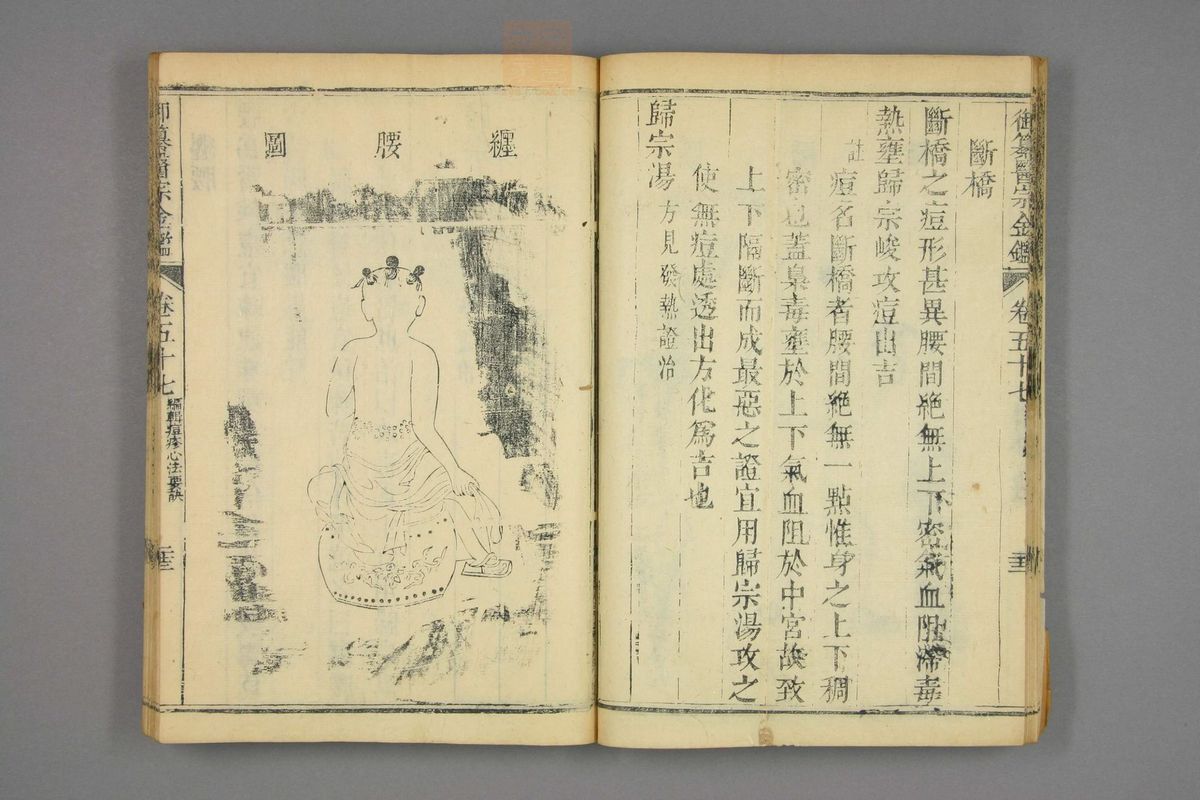 御纂醫宗金鑑 卷五十七
斷橋
斷橋之痘形甚異腰間絶無上下密氣血阻滯毒
熱壅歸宗峻攻痘出吉
註痘名斷橋者腰間絶無一點惟身之上下稠
密也蓋梟毒壅於上下氣血阻於中宮故致
上下隔斷而成最惡之證宜用歸宗湯攻之
使無痘處透出方化爲吉也
歸宗湯方見發熱證治
纏腰圖
御纂醫宗金鑑 卷五十七 編輯痘疹心法要訣